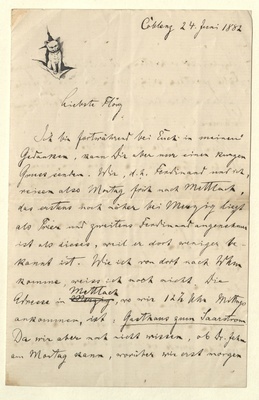 Coblenz 24. Juni 1882
Liebste Flörz
Ich bin fortwährend bei Euch in meinen
Gedanken, kann Dir aber nur einen kurzen
Gruss senden. Wir, d. h. Ferdinand und ich,
reisen also Montag früh nach Mettlach,
das erstens noch näher bei Merzig liegt
als Trier und zweitens Ferdinand angenehmer
ist als dieses, weil er dort weniger be-
kannt ist. Wie ich von dort nach
komme, weiss ich noch nicht. Die
Mettlach
Adresse in Merzig, wo wir 12¾ Uhr Mittags
ankommen, ist: Gasthaus zum Saarstrom
Da wir aber noch nicht wissen, ob Dr.
am Montag kann, worüber wir erst morgen